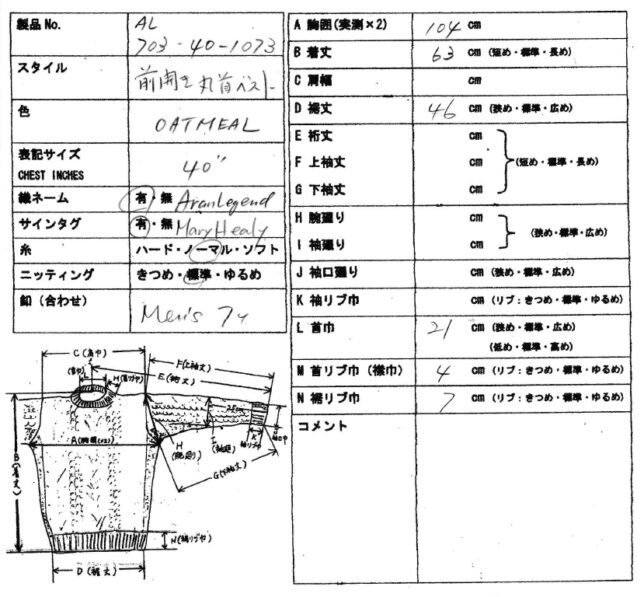 製品No.
AL
703-40-1073
スタイル
前開き丸首ベスト
色
OATMEAL
表記サイズ
CHEST INCHES
40"
織ネーム
有・無 AranLegend
サインタグ
有・無 MaryHealy
糸
ハード・ノーマル・ソフト
ニッティング
きつめ・標準・ゆるめ
釦（合わせ）
Men's 7ケ
A 胸囲(実測×2) 104 cm
B 着丈 63 cm (短め・標準・長め)
C 肩幅 cm
D 裾丈 46 cm (狭め・標準・広め)
E 裄丈 cm
F 上袖丈 cm (短め・標準・長め)
G 下袖丈 cm
H 腕廻り cm
I 袖廻り cm (狭め・標準・広め)
J 袖口廻り cm (狭め・標準・広め)
K 袖リブ巾 cm (リブ：きつめ・標準・ゆるめ)
L 首巾 21 cm (狭め・標準・広め)
(低め・標準・高め)
M 首リブ巾 (襟巾) 4 cm (リブ：きつめ・標準・ゆるめ)
N 裾リブ巾 7 cm (リブ：きつめ・標準・ゆるめ)
コメント
C(肩巾)
F(上袖丈)
E(裄丈)
L
(首巾)
M(首リブ巾)
A(胸囲(×2))
B(着丈)
H
(腕廻)
I
(袖廻)
K
袖リブ巾
G(下袖丈)
N(裾リブ巾)
D(裾丈)